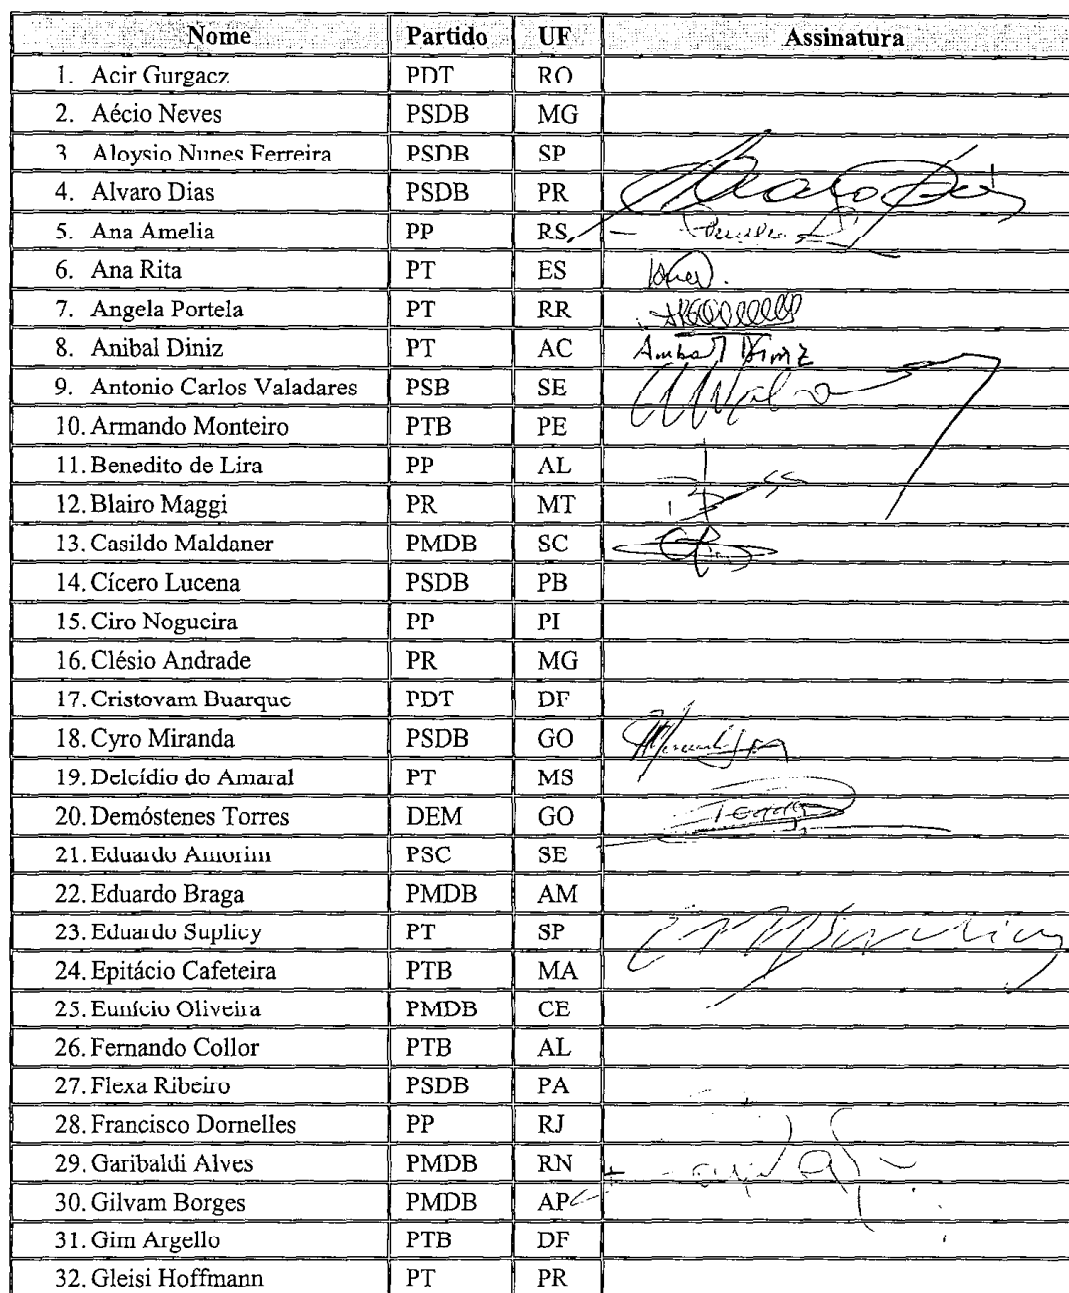 Nome Partido UF Assinatura
1. Acir Gurgacz PDT RO
2. Aécio Neves PSDB MG
3 Aloysio Nunes Ferreira PSDB SP
4. Alvaro Dias PSDB PR
5. Ana Amelia PP RS
6. Ana Rita PT ES
7. Angela Portela PT RR
8. Anibal Diniz PT AC Anibal Diniz
9. Antonio Carlos Valadares PSB SE
10. Armando Monteiro PTB PE
11. Benedito de Lira PP AL
12. Blairo Maggi PR MT
13. Casildo Maldaner PMDB SC
14. Cícero Lucena PSDB PB
15. Ciro Nogueira PP PI
16. Clésio Andrade PR MG
17. Cristovam Buarque PDT DF
18. Cyro Miranda PSDB GO
19. Delcídio do Amaral PT MS
20. Demóstenes Torres DEM GO
21. Eduardo Amorim PSC SE
22. Eduardo Braga PMDB AM
23. Eduardo Suplicy PT SP
24. Epitácio Cafeteira PTB MA
25. Eunício Oliveira PMDB CE
26. Fernando Collor PTB AL
27. Flexa Ribeiro PSDB PA
28. Francisco Dornelles PP RJ
29. Garibaldi Alves PMDB RN
30. Gilvam Borges PMDB AP
31. Gim Argello PTB DF
32. Gleisi Hoffmann PT PR